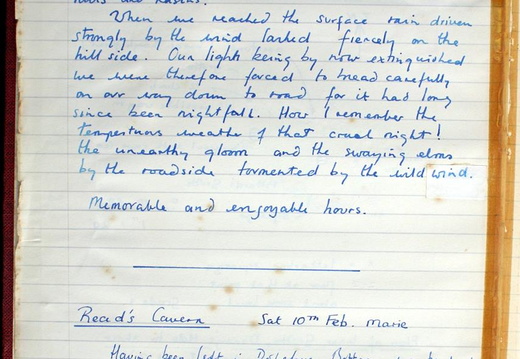 When we reached the surface rain driven
strongly by the wind lashed fiercely on the
hill side. Our lights being by now extinguished
we were therefore forced to tread carefully
on our way down to road for it had long
since been nightfall. How I remember the
tempestuous weather of that cruel night!
the unearthy gloom and the swaying elms
by the roadside tormented by the wild wind.
Memorable and enjoyable hours.
Read's Cavern Sat 10TH Feb. Marie
Having been left in